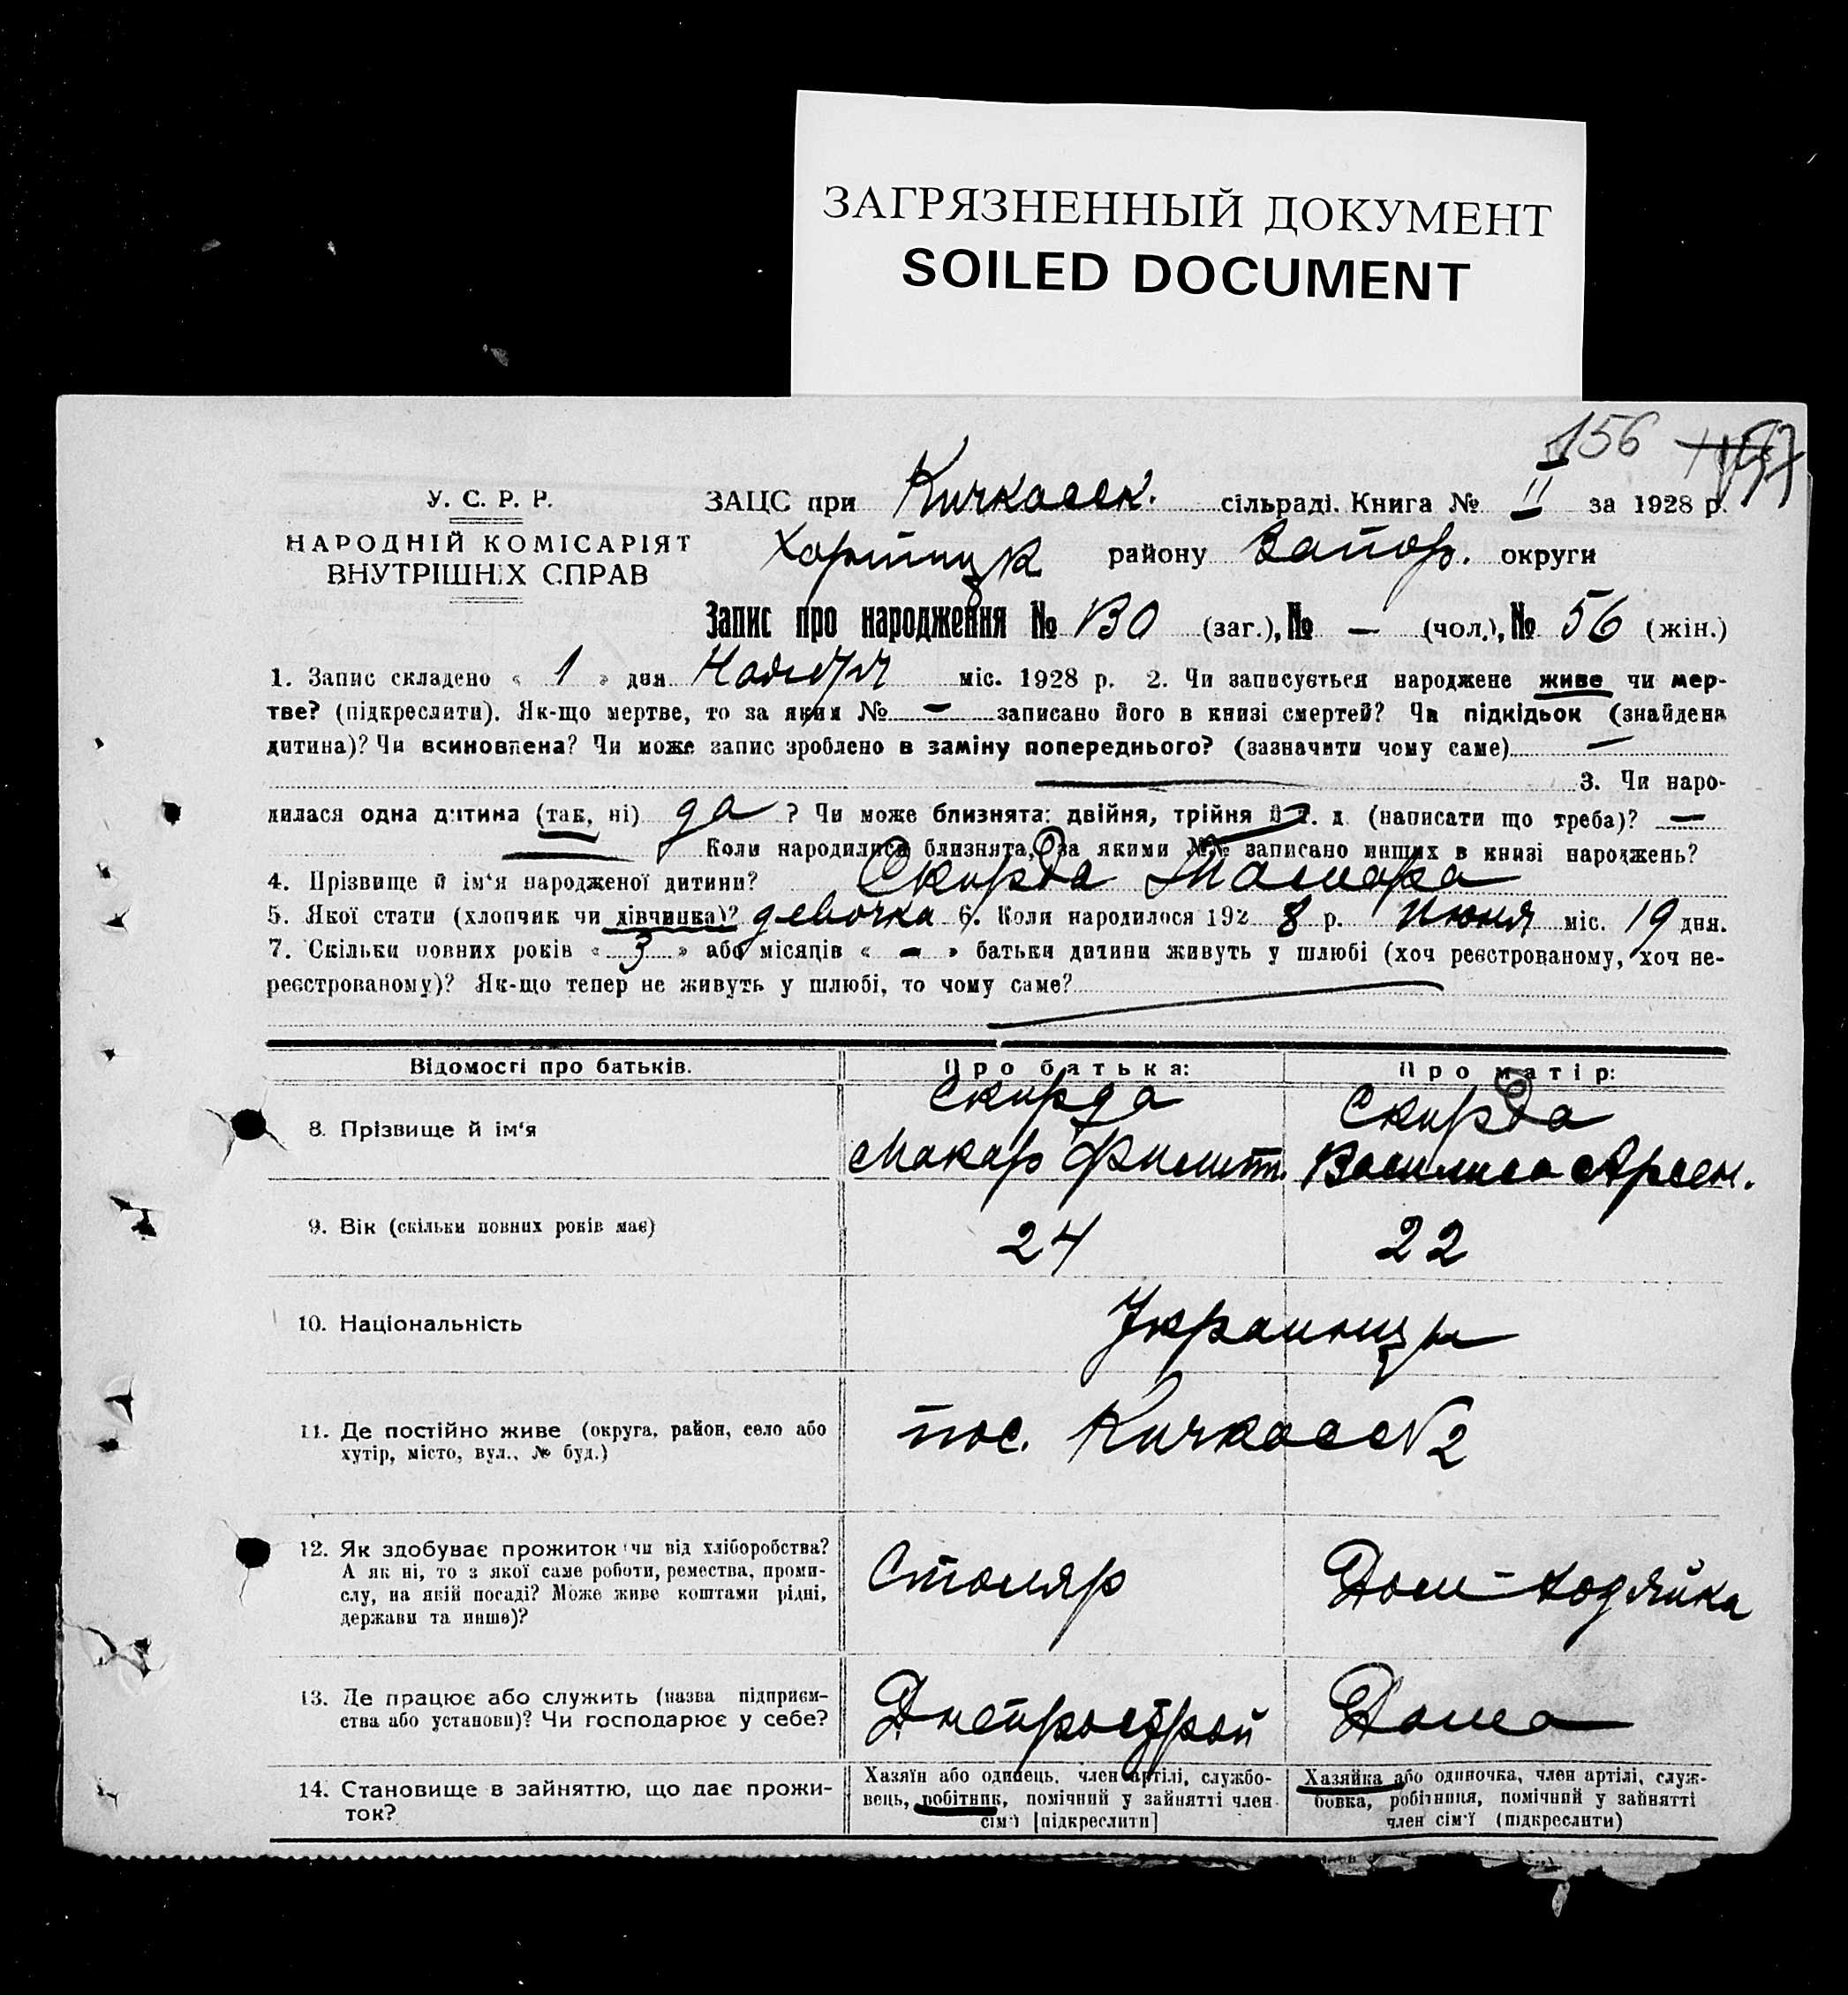 ЗАГРЯЗНЕННЫЙ ДОКУМЕНТ
SOILED DOCUMENT
156
У. С. Р. Р.
НАРОДНІЙ КОМІСАРІЯТ
ВНУТРІШНІХ СПРАВ
ЗАЦС при Кичкасск. сільраді. Книга № II за 1928 р.
Хортицк району Запор. округи
Запис про народження № 130 (заг.), № — (чол.), № 56 (жін.)
1. Запис складено « 1 » дня Ноября міс. 1928 р. 2. Чи записується народжене живе чи мер-
тве? (підкреслити). Як-що мертве, то за яким № — записано його в книзі смертей? Чи підкідьок (знайдена
дитина)? Чи всиновлена? Чи може запис зроблено в заміну попереднього? (зазначити чому саме) —
3. Чи наро-
дилася одна дитина (так, ні) да ? Чи може близнята: двійня, трійня й т. д. (написати що треба)? —
Коли народилися близнята, за якими №№ записано инших в книзі народжень?
4. Прізвище й ім‘я народженої дитини? Скирда Тамара
5. Якої стати (хлопчик чи дівчинка)? девочка 6. Коли народилося 192 8 р. Июня міс. 19 дня.
7. Скільки повних років « 3 » або місяців « - » батьки дитини живуть у шлюбі (хоч реєстрованому, хоч не-
реєстрованому)? Як-що тепер не живуть у шлюбі, то чому саме?
Відомості про батьків. Про батька: Про матір:
8. Прізвище й ім‘я
Скирда
Макар Филипп.
Скирда
Василиса Арсен.
9. Вік (скільки повних років має) 24 22
10. Національність Украинцы
11. Де постійно живе (округа, район, село або
хутір, місто, вул., № буд.)
пос. Кичкасс №2
12. Як здобуває прожиток чи від хліборобства?
А як ні, то з якої саме роботи, ремества, проми-
слу, на якій посаді? Може живе коштами рідні,
держави та инше)?
Столяр Дом-хозяйка
13. Де працює або служить (назва підприєм-
ства або установи)? Чи господарює у себе?
Днепрострой Дома
14. Становище в зайняттю, що дає прожи-
ток?
Хазяїн або одинець, член артілі, службо-
вець, робітник, помічний у зайнятті член
сім‘ї [підкреслити]
Хазяйка або одиночка, член артілі, служ-
бовка, робітниця, помічний у зайнятті
член сім‘ї (підкреслити)